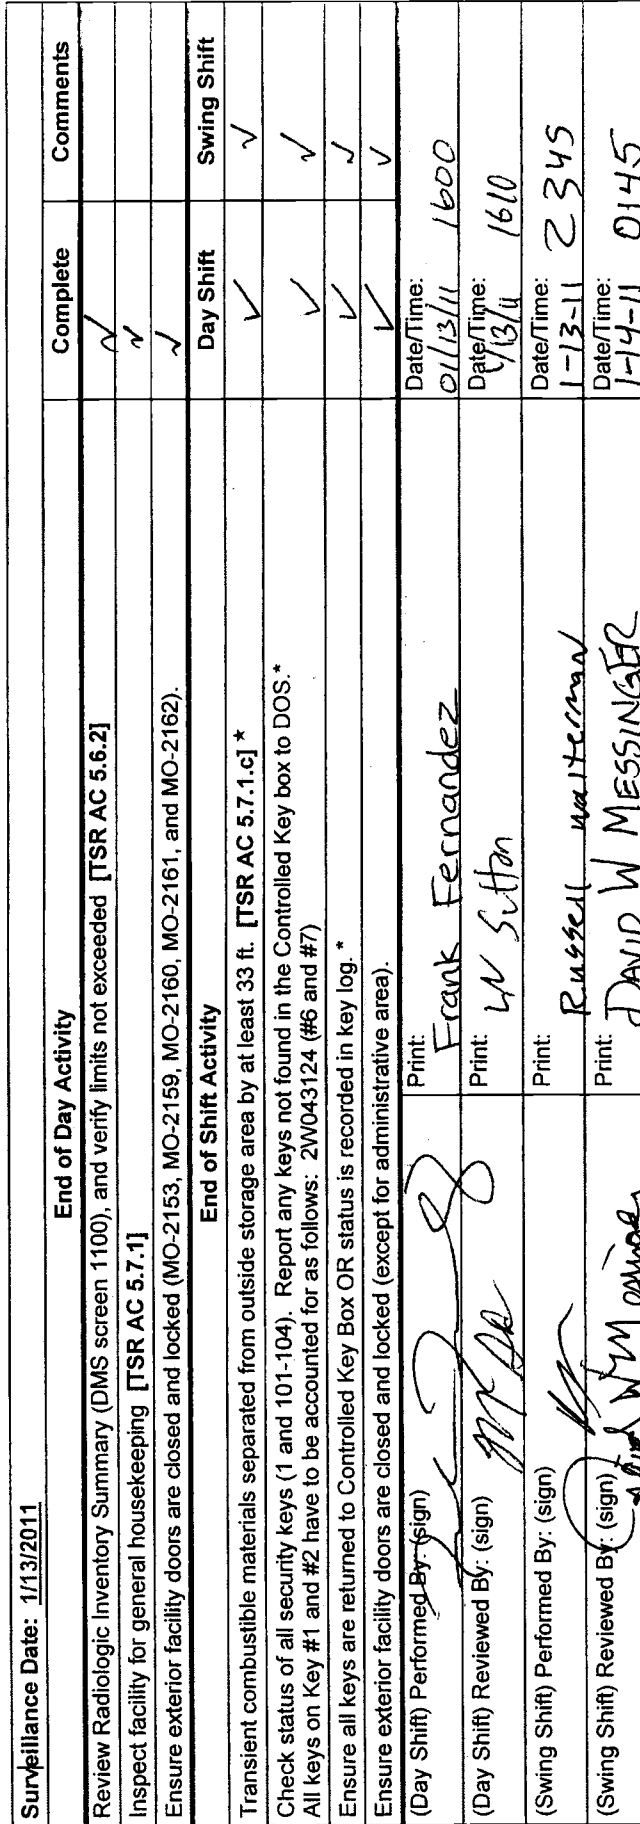 Surveillance Date: 1/13/2011
End of Day Activity Complete Comments
Review Radiologic Inventory Summary (DMS screen 1100), and verify limits not exceeded [TSR AC 5.6.2] ✓
Inspect facility for general housekeeping [TSR AC 5.7.1] ✓
Ensure exterior facility doors are closed and locked (MO-2153, MO-2159, MO-2160, MO-2161, and MO-2162). ✓
End of Shift Activity Day Shift Swing Shift
Transient combustible materials separated from outside storage area by at least 33 ft. [TSR AC 5.7.1.c] * ✓ ✓
Check status of all security keys (1 and 101-104). Report any keys not found in the Controlled Key box to DOS.* ✓ ✓
All keys on Key #1 and #2 have to be accounted for as follows: 2W043124 (#6 and #7)
Ensure all keys are returned to Controlled Key Box OR status is recorded in key log.* ✓ ✓
Ensure exterior facility doors are closed and locked (except for administrative area). ✓ ✓
(Day Shift) Performed By: (sign) Print: Frank Fernandez Date/Time: 01/13/11 1600
(Day Shift) Reviewed By: (sign) Print: Sutton Date/Time: 1/13/11 1610
(Swing Shift) Performed By: (sign) Print: Russell Walterman Date/Time: 1-13-11 2345
(Swing Shift) Reviewed By: (sign) Print: DAVID W MESSINGER Date/Time: 1-14-11 0145